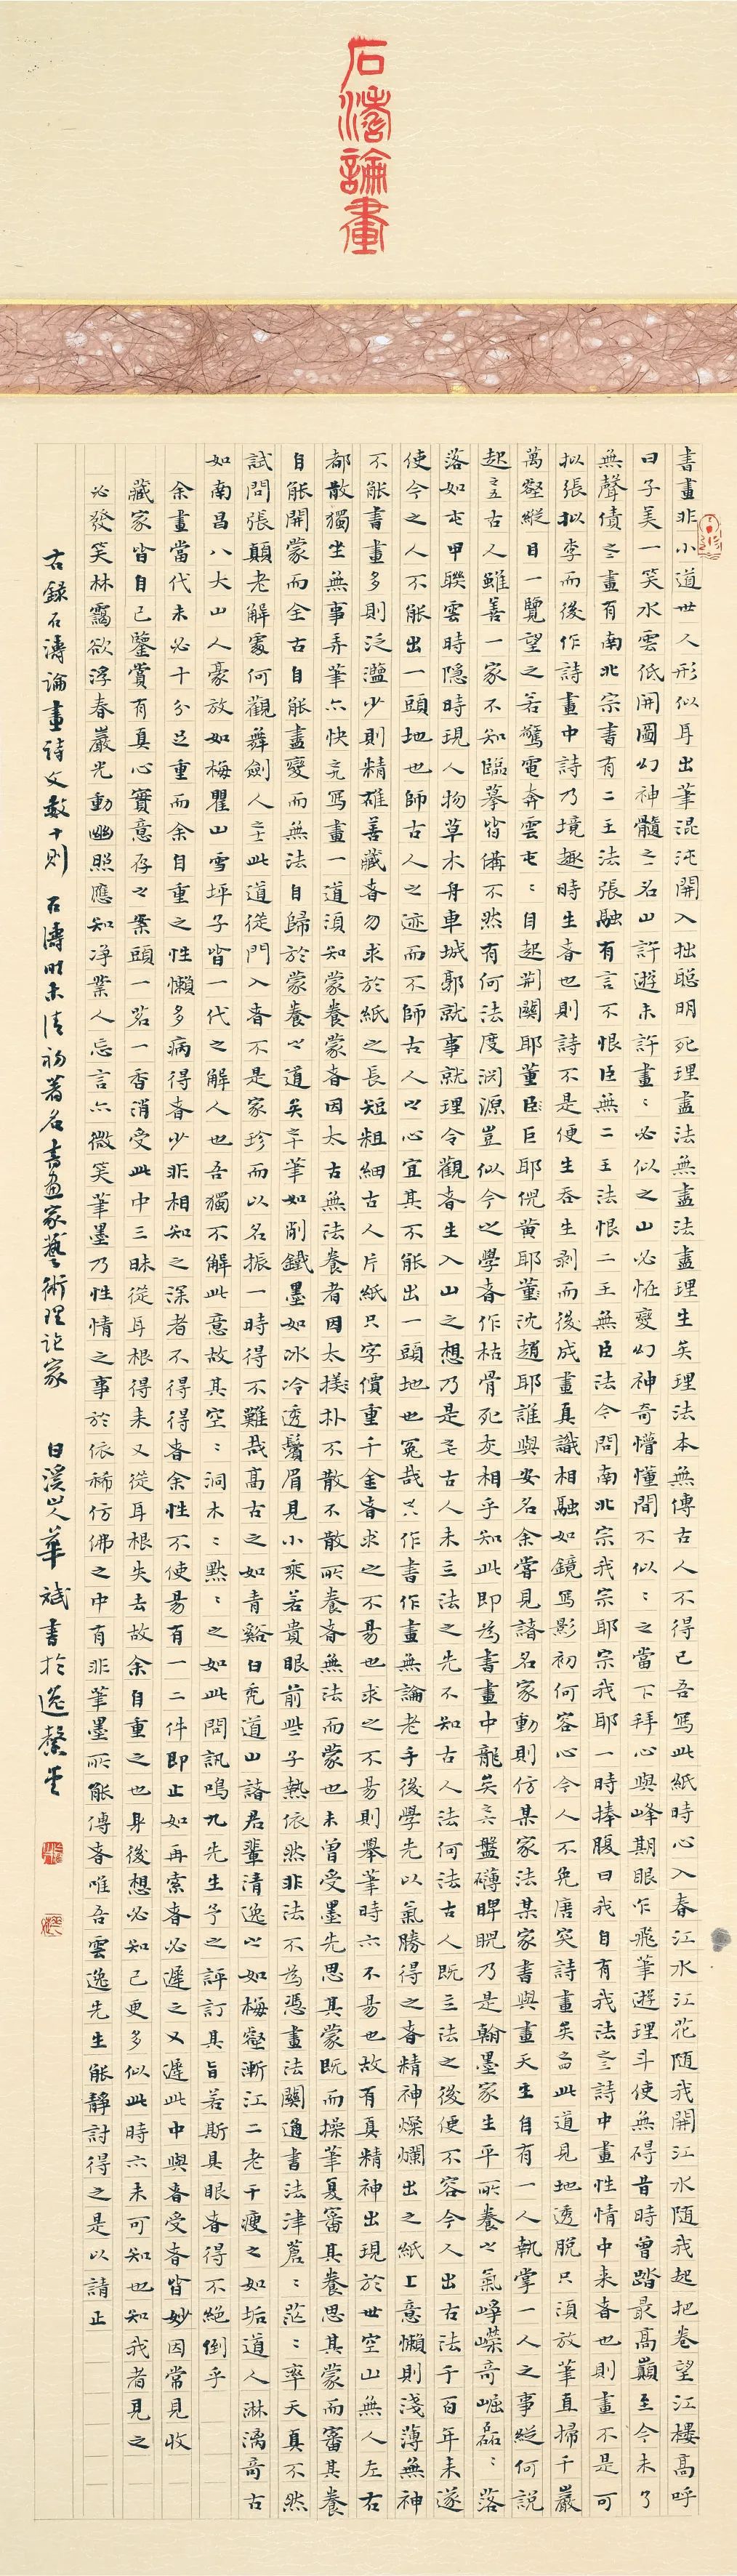 石濤論畫
書畫非小道世人形似耳出筆混沌開入拙聰明死理盡法無盡法盡理生矣理法本無傳古人不得已吾寫此紙時心入春江水江花隨我開江水隨我起把卷望江樓高呼
曰子美一笑水雲低開圖幻神髓之一名山許遊未許畫〻必似之山必怪變幻神奇懵懂間不似〻之當下拜心與峰期眼乍飛筆遊理斗使無碍昔時曾踏最高巔至今未了
無聲債之二畫有南北宗書有二王法張融有言不恨臣無二王法恨二王無臣法今問南北宗我宗耶宗我耶一時捧腹曰我自有我法之三詩中畫性情中來者也則畫不是可
拟張拟李而後作詩畫中詩乃境趣時生者也則詩不是便生吞生剥而後成畫真識相融如鏡寫影初何容心今人不免唐突詩畫矣之四此道見地透脫只須放筆直掃千巖
萬壑縱目一覽望之若驚電奔雲屯〻自起荆關耶董巨耶倪黄耶董沈趙耶誰與安名余嘗見諸名家動則仿某家法某家書與畫天生自有一人執掌一人之事縱何說
起之五古人雖善一家不知臨摹皆備不然有何法度淵源豈似今之學者作枯骨死灰相乎知此即為書畫中龍矣之六盤礴睥睨乃是翰墨家生平所養之氣崢嶸奇崛磊〻落
落如屯甲聯雲時隱時現人物草木舟車城郭就事就理令觀者生入山之想乃是之七古人未立法之先不知古人法何法古人既立法之後便不容今人出古法千百年来遂
使今之人不能出一頭地也師古人之迹而不師古人之心宜其不能出一頭地也冤哉之八作書作畫無論老手後學先以氣勝得之者精神燦爛出之紙上意懶則淺薄無神
不能書畫多則泛濫少則精雄善藏者勿求於紙之長短粗細古人片紙只字價重千金者求之不易也求之不易則舉筆時亦不易也故有真精神出現於世空山無人左右
都散獨坐無事弄筆亦快之九寫畫一道須知蒙養蒙者因太古無法養者因太樸朴不散不散所養者無法而蒙也未曾受墨先思其蒙既而操筆复審其養思其蒙而審其養
自能開蒙而全古自能盡變而無法自歸於蒙養之道矣之十筆如削鐵墨如冰冷透鬚眉見小乘若貴眼前些子熱依然非法不為憑畫法關通書法津蒼〻茫〻率天真不然
試問張顛老解處何觀舞劍人之十一此道從門入者不是家珍而以名振一時得不難哉高古之如青谿白秃道山諸君輩清逸之如梅壑漸江二老干瘦之如垢道人淋漓奇古
如南昌八大山人豪放如梅瞿山雪坪子皆一代之解人也吾獨不解此意故其空〻洞木〻默〻之如此問訊鳴九先生予之評訂其旨若斯具眼者得不絕倒乎
余畫當代未必十分足重而余自重之性懶多病得者少非相知之深者不得得者余性不使易有一二件即止如再索者必遲之又遲此中與者受者皆妙因常見收
藏家皆自己鑒賞有真心實意存之案頭一茗一香消受此中三昧從耳根得来又從耳根失去故余自重之也身後想必知己更多似此時亦未可知也知我者見之
必發笑林靄欲浮春巖光動幽照應知净業人忘言亦微笑筆墨乃性情之事於依稀仿佛之中有非筆墨所能傳者唯吾雲逸先生能靜討得之是以請正
右錄石濤論畫詩文數十則 石濤明末清初著名書畫家藝術理論家 白溪山人華斌書於逸馨堂